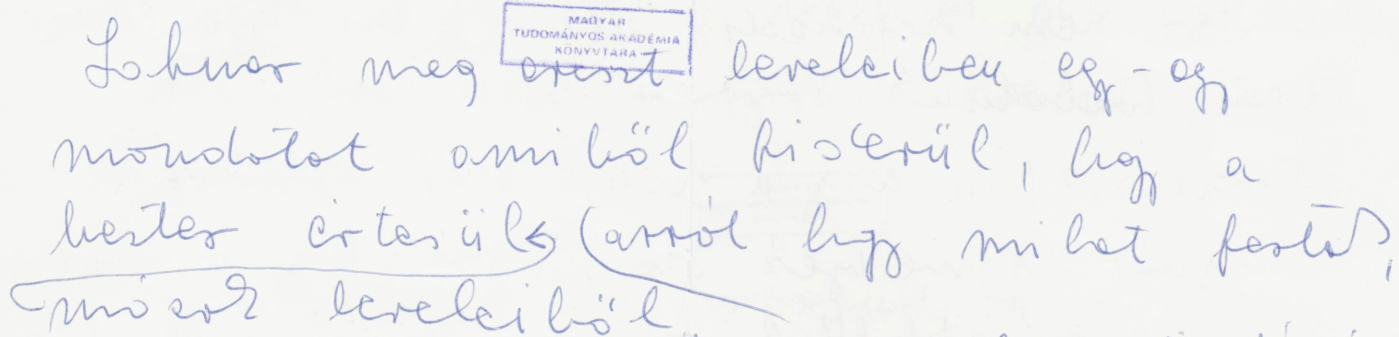 MAGYAR
TUDOMÁNYOS AKADÉMIA
KÖNYVTÁRA
Sokszor meg ereszt leveleiben egy-egy
mondatot amiből kiderül, hogy a
mester értesül (arról hogy miket
mások leveleiből